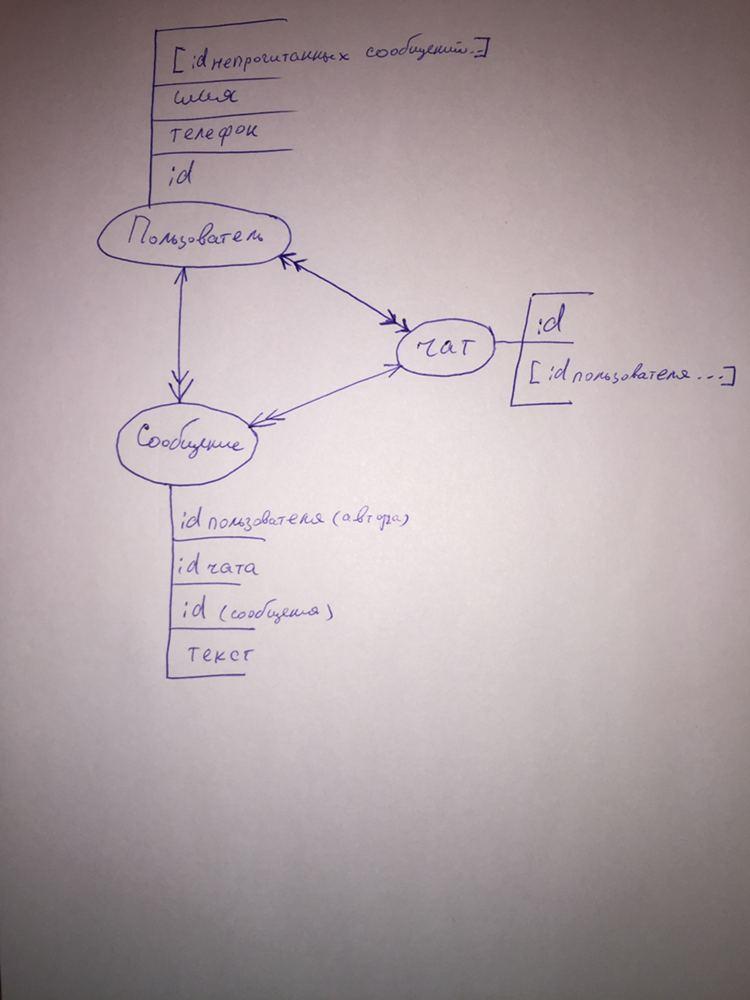 [id непрочитанных сообщений...]
имя
телефон
id
Пользователь
чат
id
[id пользователя ...]
Сообщение
id пользователя (автора)
id чата
id (сообщения)
текст